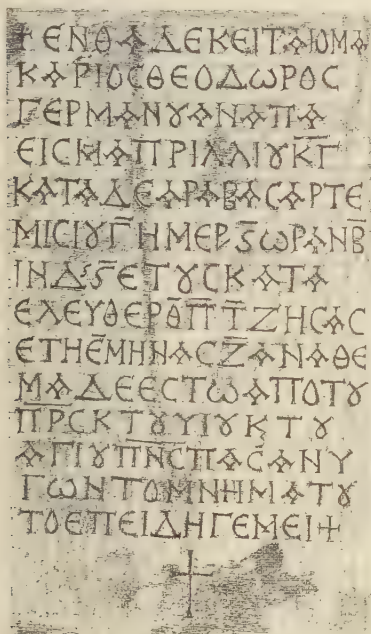 +ΕΝΘΑΔΕΚΕΙΤΑΙΟΜΑ
ΚΑΡΙΟCΘΕΟΔΩΡΟC
ΓΕΡΜΑΝȢΑΝΑΠΑ
ΕΙCΜΑΠΡΙΛΛΙȢΚ̅Γ̅
ΚΑΤΑΔΕΑΡΑΒΑCΑΡΤΕ
ΜΙCΙȢΓ̅ΗΜΕΡϚ̅ΩΡΑΝΒ̅
ΙΝΔϚϚ̅ΕΤȢCΚΑΤΑ
ΕΛΕΥΘΕΡΘ̅Π̅Τ̅ΖΗCΑC
ΕΤΗΕ̅ΜΗΝΑCΖ̅ΑΝΑΘΕ
ΜΑΔΕΕCΤΩΑΠΟΤȢ
ΠΡCΚΤȢΥΙȢΚΤȢ
ΑΓΙȢΠ̅Ν̅C̅ΠΑCΑΝΥ
ΓΩΝΤΟΜΝΗΜΑΤȢ
ΤΟΕΠΕΙΔΗΓΕΜΕΙ+